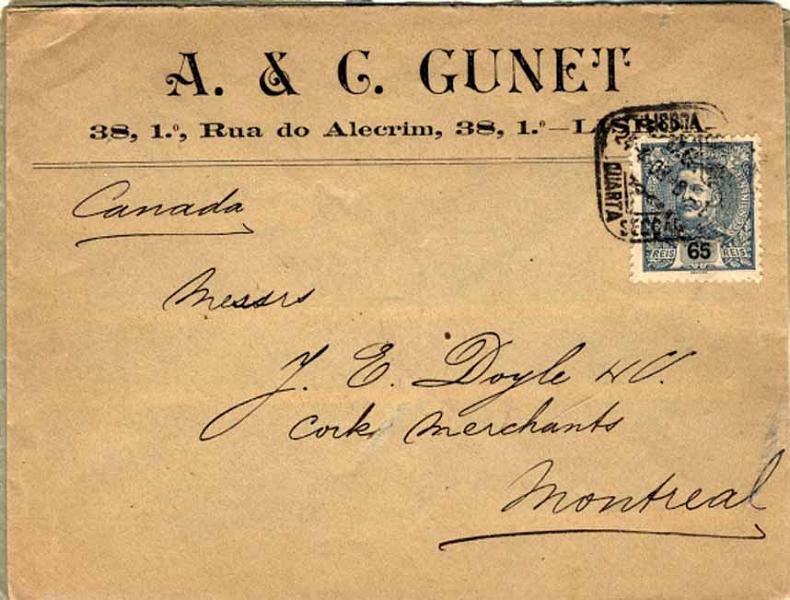 A. & C. GUNET
38, 1.º, Rua do Alecrim, 38, 1.º—LISBOA
LISBOA
QUARTA
SECÇÃO
REIS 65 REIS
Canada
Messrs
J. E. Doyle & C.
Cork Merchants
Montreal